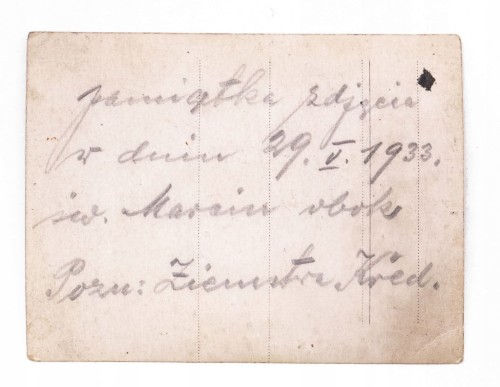 pamiątka zdjęcia
w dniu 29. V. 1933.
św. Marcin obok
Pozn: Ziemstwa Kred.